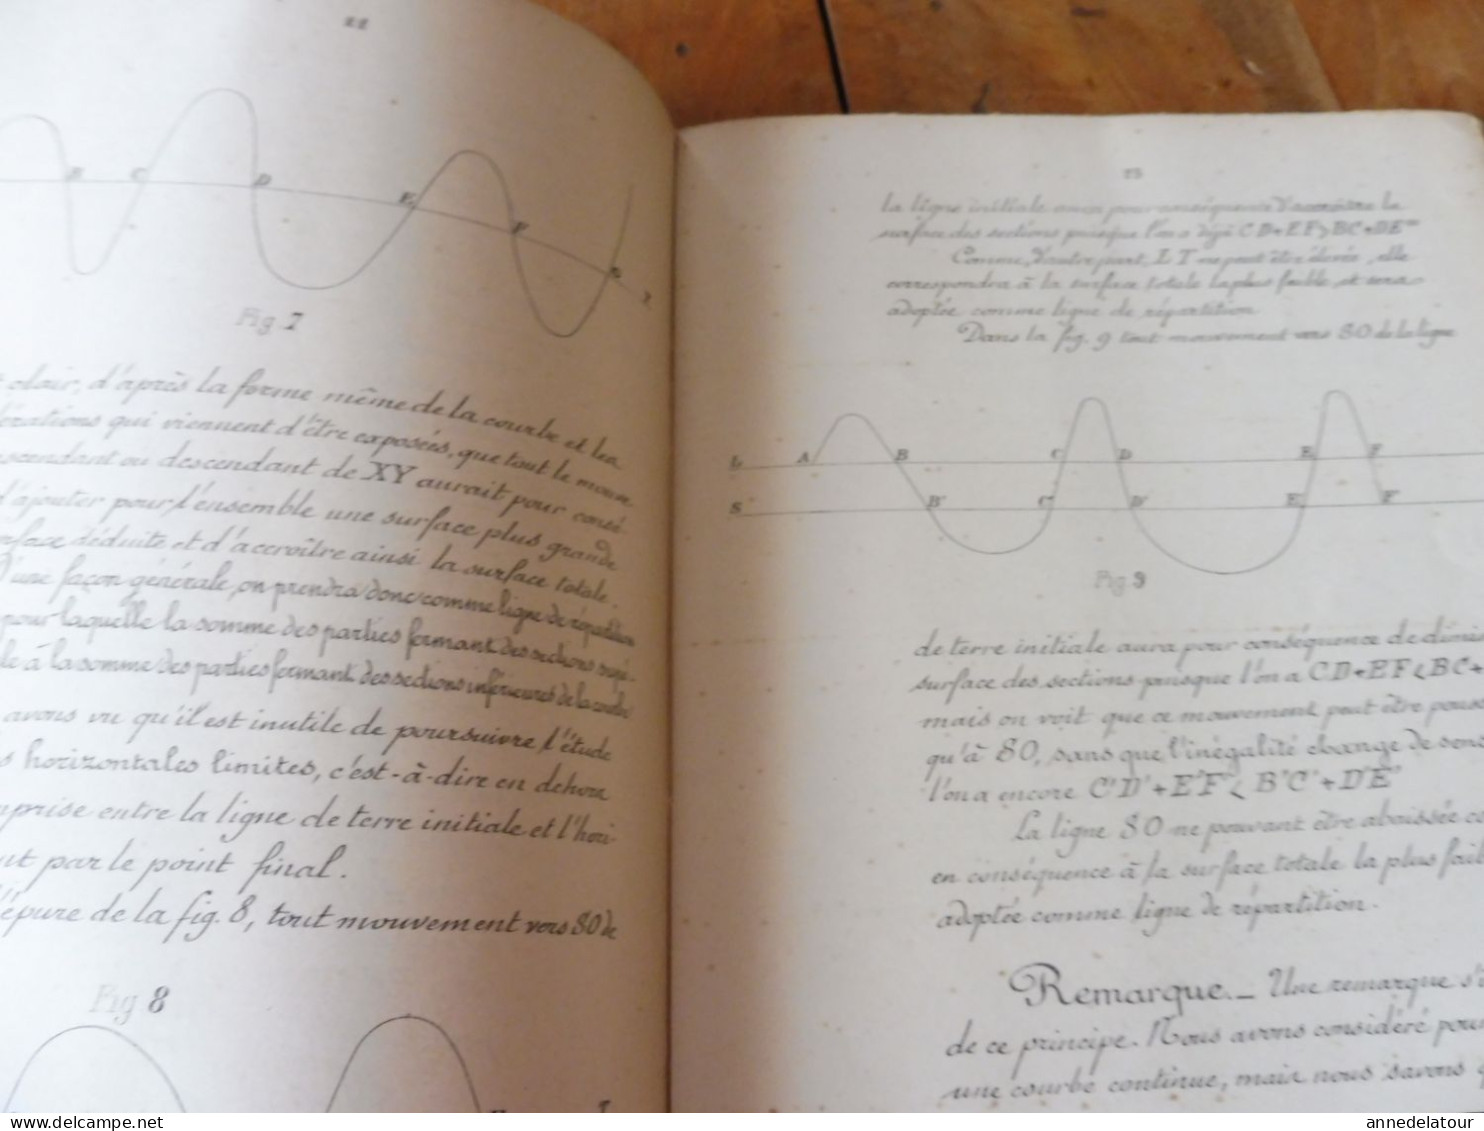 22
B C D E F G
Fig. 7
clair, d'après la forme même de la courbe et les
érations qui viennent d'être exposées, que tout le mouve-
scendant ou descendant de XY aurait pour consé-
d'ajouter pour l'ensemble une surface plus grande
rface déduite et d'accroître ainsi la surface totale.
D'une façon générale, on prendra donc comme ligne de répartition
pour laquelle la somme des parties fermant des sections supé-
le à la somme des parties fermant des sections inférieures de la courbe
avons vu qu'il est inutile de poursuivre l'étude
s horizontales limites, c'est-à-dire en dehors
mprise entre la ligne de terre initiale et l'hori-
nt par le point final.
l'épure de la fig. 8, tout mouvement vers SO de
Fig 8
23
la ligne initiale aura pour conséquence d'accroître la
surface des sections puisque l'on a déjà CD+EF>BC+DE
Comme, d'autre part, LT ne peut être élevée, elle
correspondra à la surface totale la plus faible et sera
adoptée comme ligne de répartition
Dans la fig. 9 tout mouvement vers SO de la ligne
L A B C D E F
S B' C' D' E' F'
Fig. 9
de terre initiale aura pour conséquence de dimi
surface des sections puisque l'on a CD+EF<BC+
mais on voit que ce mouvement peut être pous
qu'à SO, sans que l'inégalité change de sens
l'on a encore C'D'+E'F'< B'C'+D'E'
La ligne SO ne pouvant être abaissée co
en conséquence à la surface totale la plus fail
adoptée comme ligne de répartition.
Remarque._ Une remarque s'i
de ce principe. Nous avons considéré pour
une courbe continue, mais nous savons q
delcampe.net
annedelatour